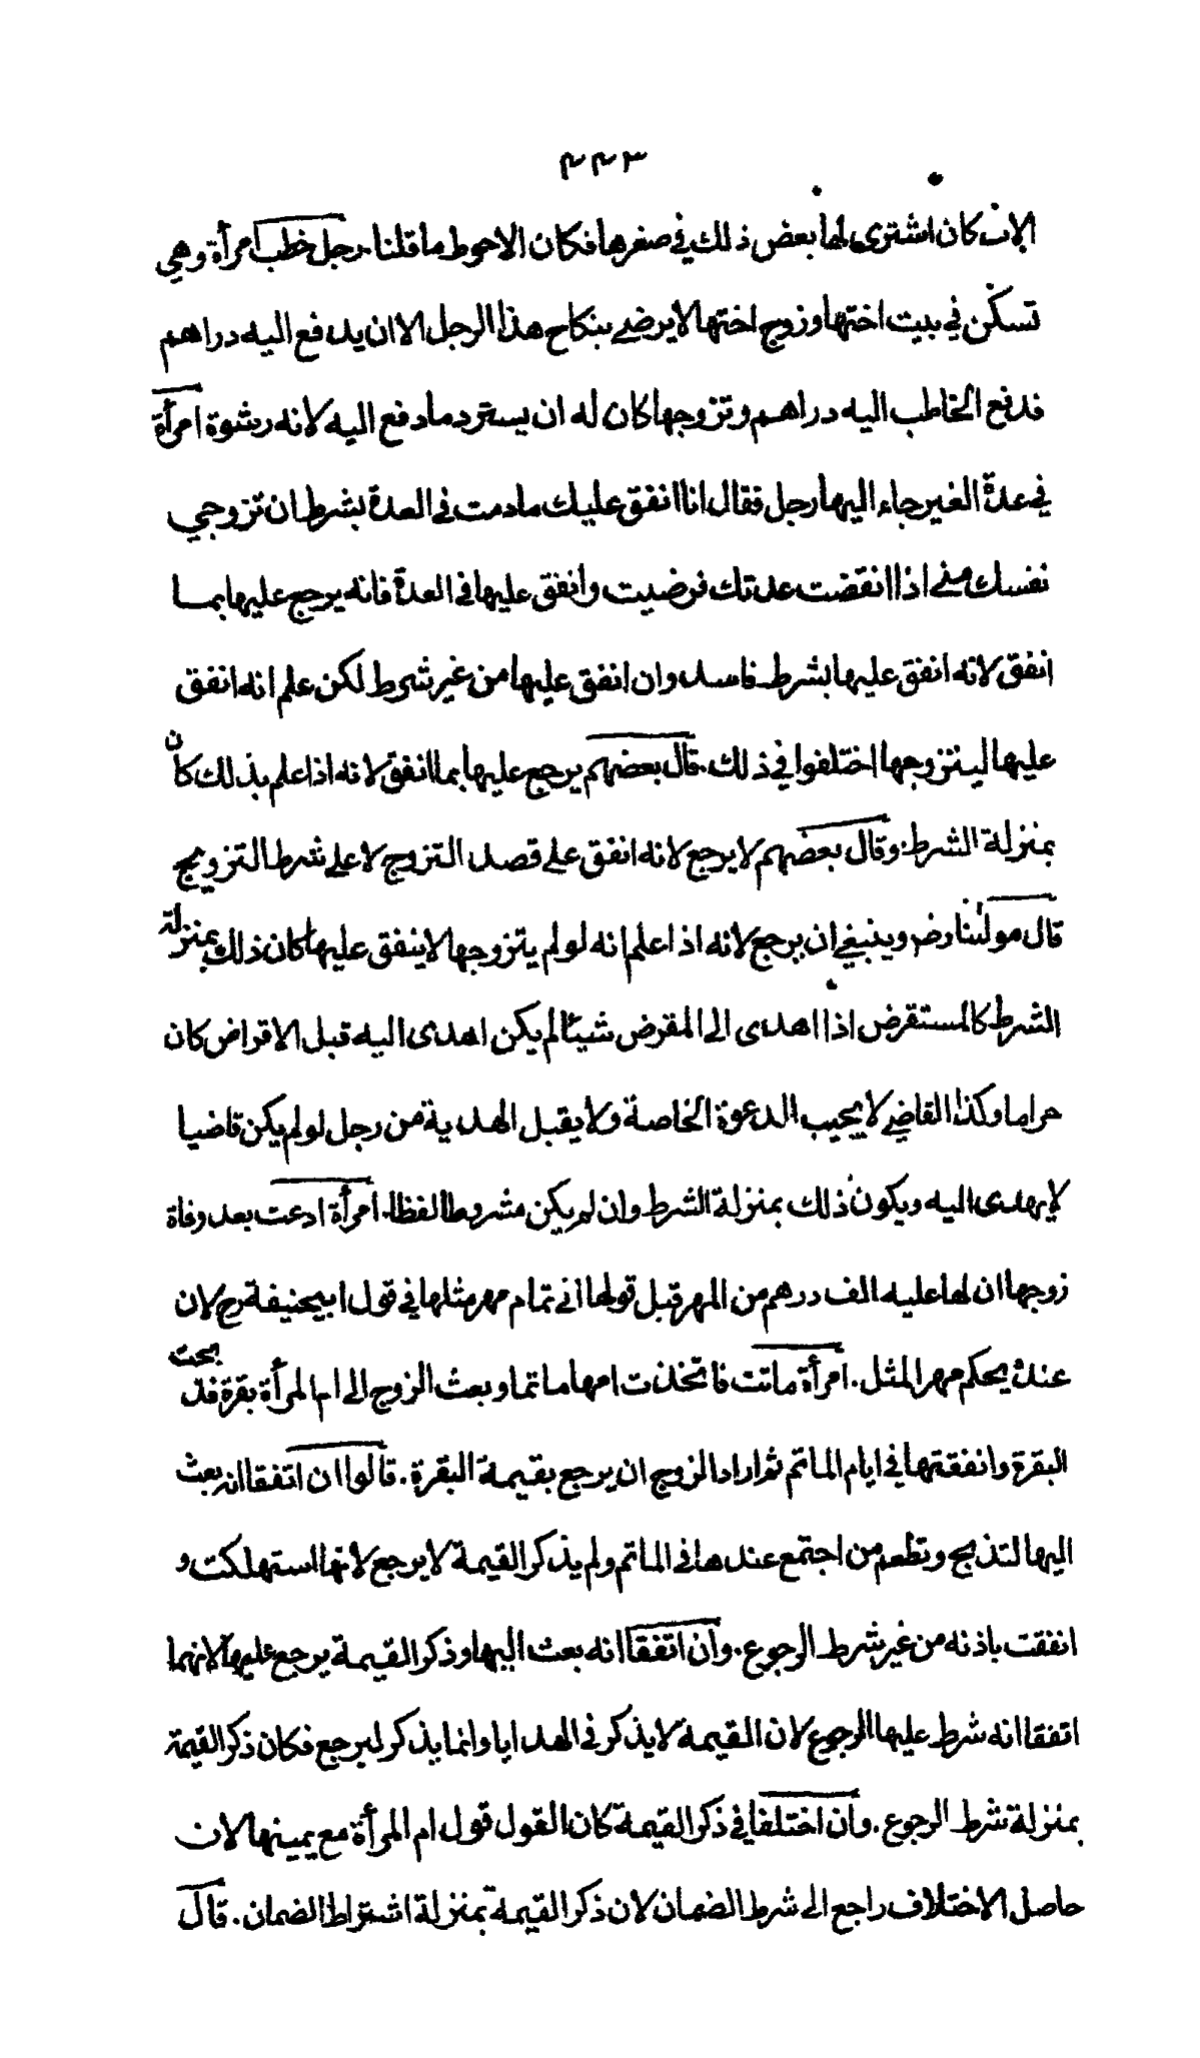 ٤٤٣
الاب كان اشترى لها بعض ذلك في صغرها فكان الاحوط ما قلنا رجل خطب امرأة وهي
تسكن في بيت اختها وزوج اختها لا يرضى بنكاح هذا الرجل الا ان يدفع اليه دراهم
فدفع الخاطب اليه دراهم وتزوجها كان له ان يسترد ما دفع اليه لانه رشوة امرأة
في عدة الغير جاء اليها رجل فقال انا انفق عليك ما دمت في العدة بشرط ان تزوجي
نفسك مني اذا انقضت عدتك فرضيت وانفق عليها في العدة فانه يرجع عليها بما
انفق لانه انفق عليها بشرط فاسد وان انفق عليها من غير شرط لكن علم انه انفق
عليها ليتزوجها اختلفوا في ذلك. قال بعضهم يرجع عليها بما انفق لانه اذا علم بذلك كان
بمنزلة الشرط. وقال بعضهم لا يرجع لانه انفق على قصد التزوج لا على شرط التزويج
قال مولٰنا رض وينبغي ان يرجع لانه اذا علم انه لو لم يتزوجها لا ينفق عليها كان ذلك بمنزلة
الشرط كالمستقرض اذا اهدى الى المقرض شيئا لم يكن اهدى اليه قبل الاقراض كان
حراما وكذا القاضي لا يجيب الدعوة الخاصة ولا يقبل الهدية من رجل لو لم يكن قاضيا
لا يهدى اليه ويكون ذلك بمنزلة الشرط وان لم يكن مشروطا لفظا. امرأة ادعت بعد وفاة
زوجها ان لها عليه الف درهم من المهر قبل قولها الى تمام مهر مثلها في قول ابيحنيفة رح لان
عنده يحكم مهر المثل. امرأة ماتت فاتخذت امها ماتما وبعث الزوج الى ام المرأة بقرة فذبحت
البقرة وانفقتها في ايام الماتم ثم اراد الزوج ان يرجع بقيمة البقرة. قالوا ان اتفقا انه بعث
اليها لتذبح وتطعم من اجتمع عندها في الماتم ولم يذكر القيمة لا يرجع لانها استهلكت و
انفقت باذنه من غير شرط الرجوع. وان اتفقا انه بعث اليها وذكر القيمة يرجع عليها لانهما
اتفقا انه شرط عليها الرجوع لان القيمة لا يذكر في الهدايا وانما يذكر ليرجع فكان ذكر القيمة
بمنزلة شرط الرجوع. وان اختلفا في ذكر القيمة كان القول قول ام المرأة مع يمينها لان
حاصل الاختلاف راجع الى شرط الضمان لان ذكر القيمة بمنزلة اشتراط الضمان. قال